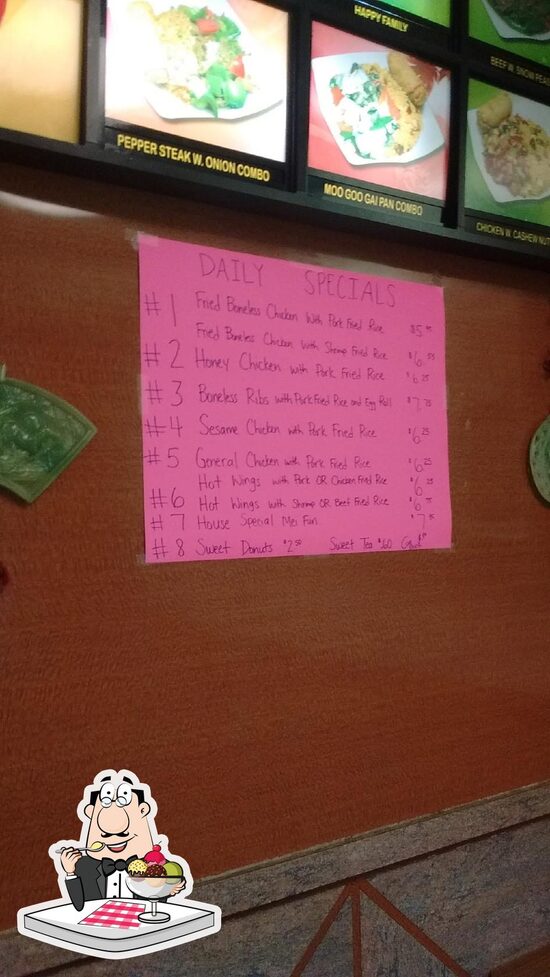 HAPPY FAMILY
BEEF W. SNOW PEA
PEPPER STEAK W. ONION COMBO
MOO GOO GAI PAN COMBO
CHICKEN W. CASHEW NU
DAILY SPECIALS
#1 Fried Boneless Chicken With Pork Fried Rice
Fried Boneless Chicken With Shrimp Fried Rice
#2 Honey Chicken with Pork Fried Rice $6.25
#3 Boneless Ribs with Pork Fried Rice and Egg Roll $7.25
#4 Sesame Chicken with Pork Fried Rice $6.25
#5 General Chicken with Pork Fried Rice $6.25
Hot Wings with Pork OR Chicken Fried Rice $6.25
#6 Hot Wings with Shrimp OR Beef Fried Rice
#7 House Special Mei Fun
#8 Sweet Donuts $2.50 Sweet Tea